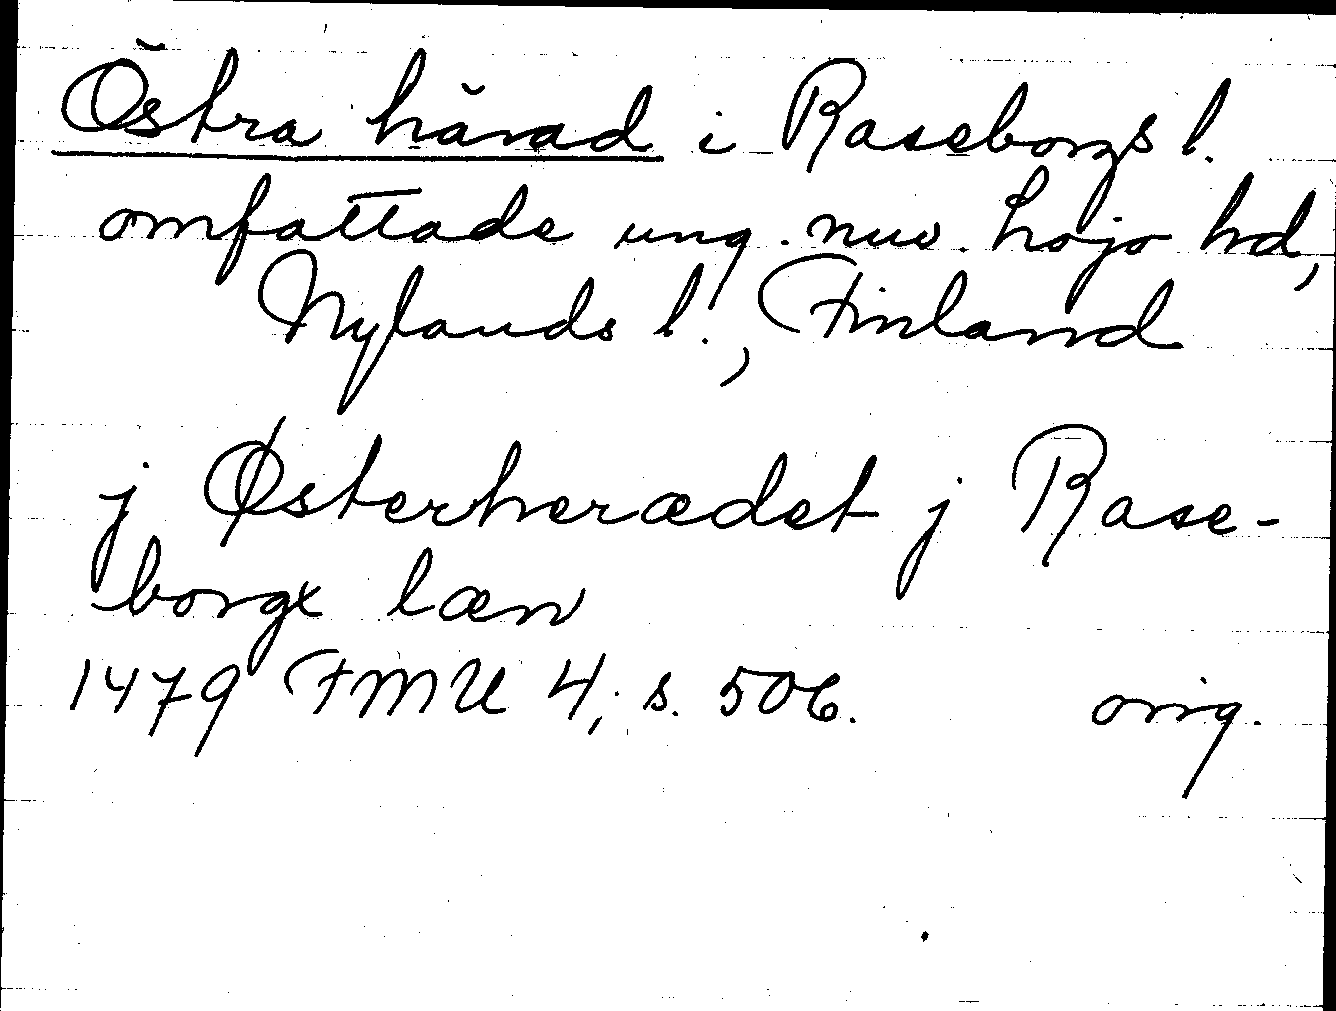 Östra härad i Raseborgs l.
omfattade ung. nuv. Lojo hd,
Nylands l., Finland
j Østerherædet j Rase-
borgx læn
1479 FMU 4, s. 506. orig.